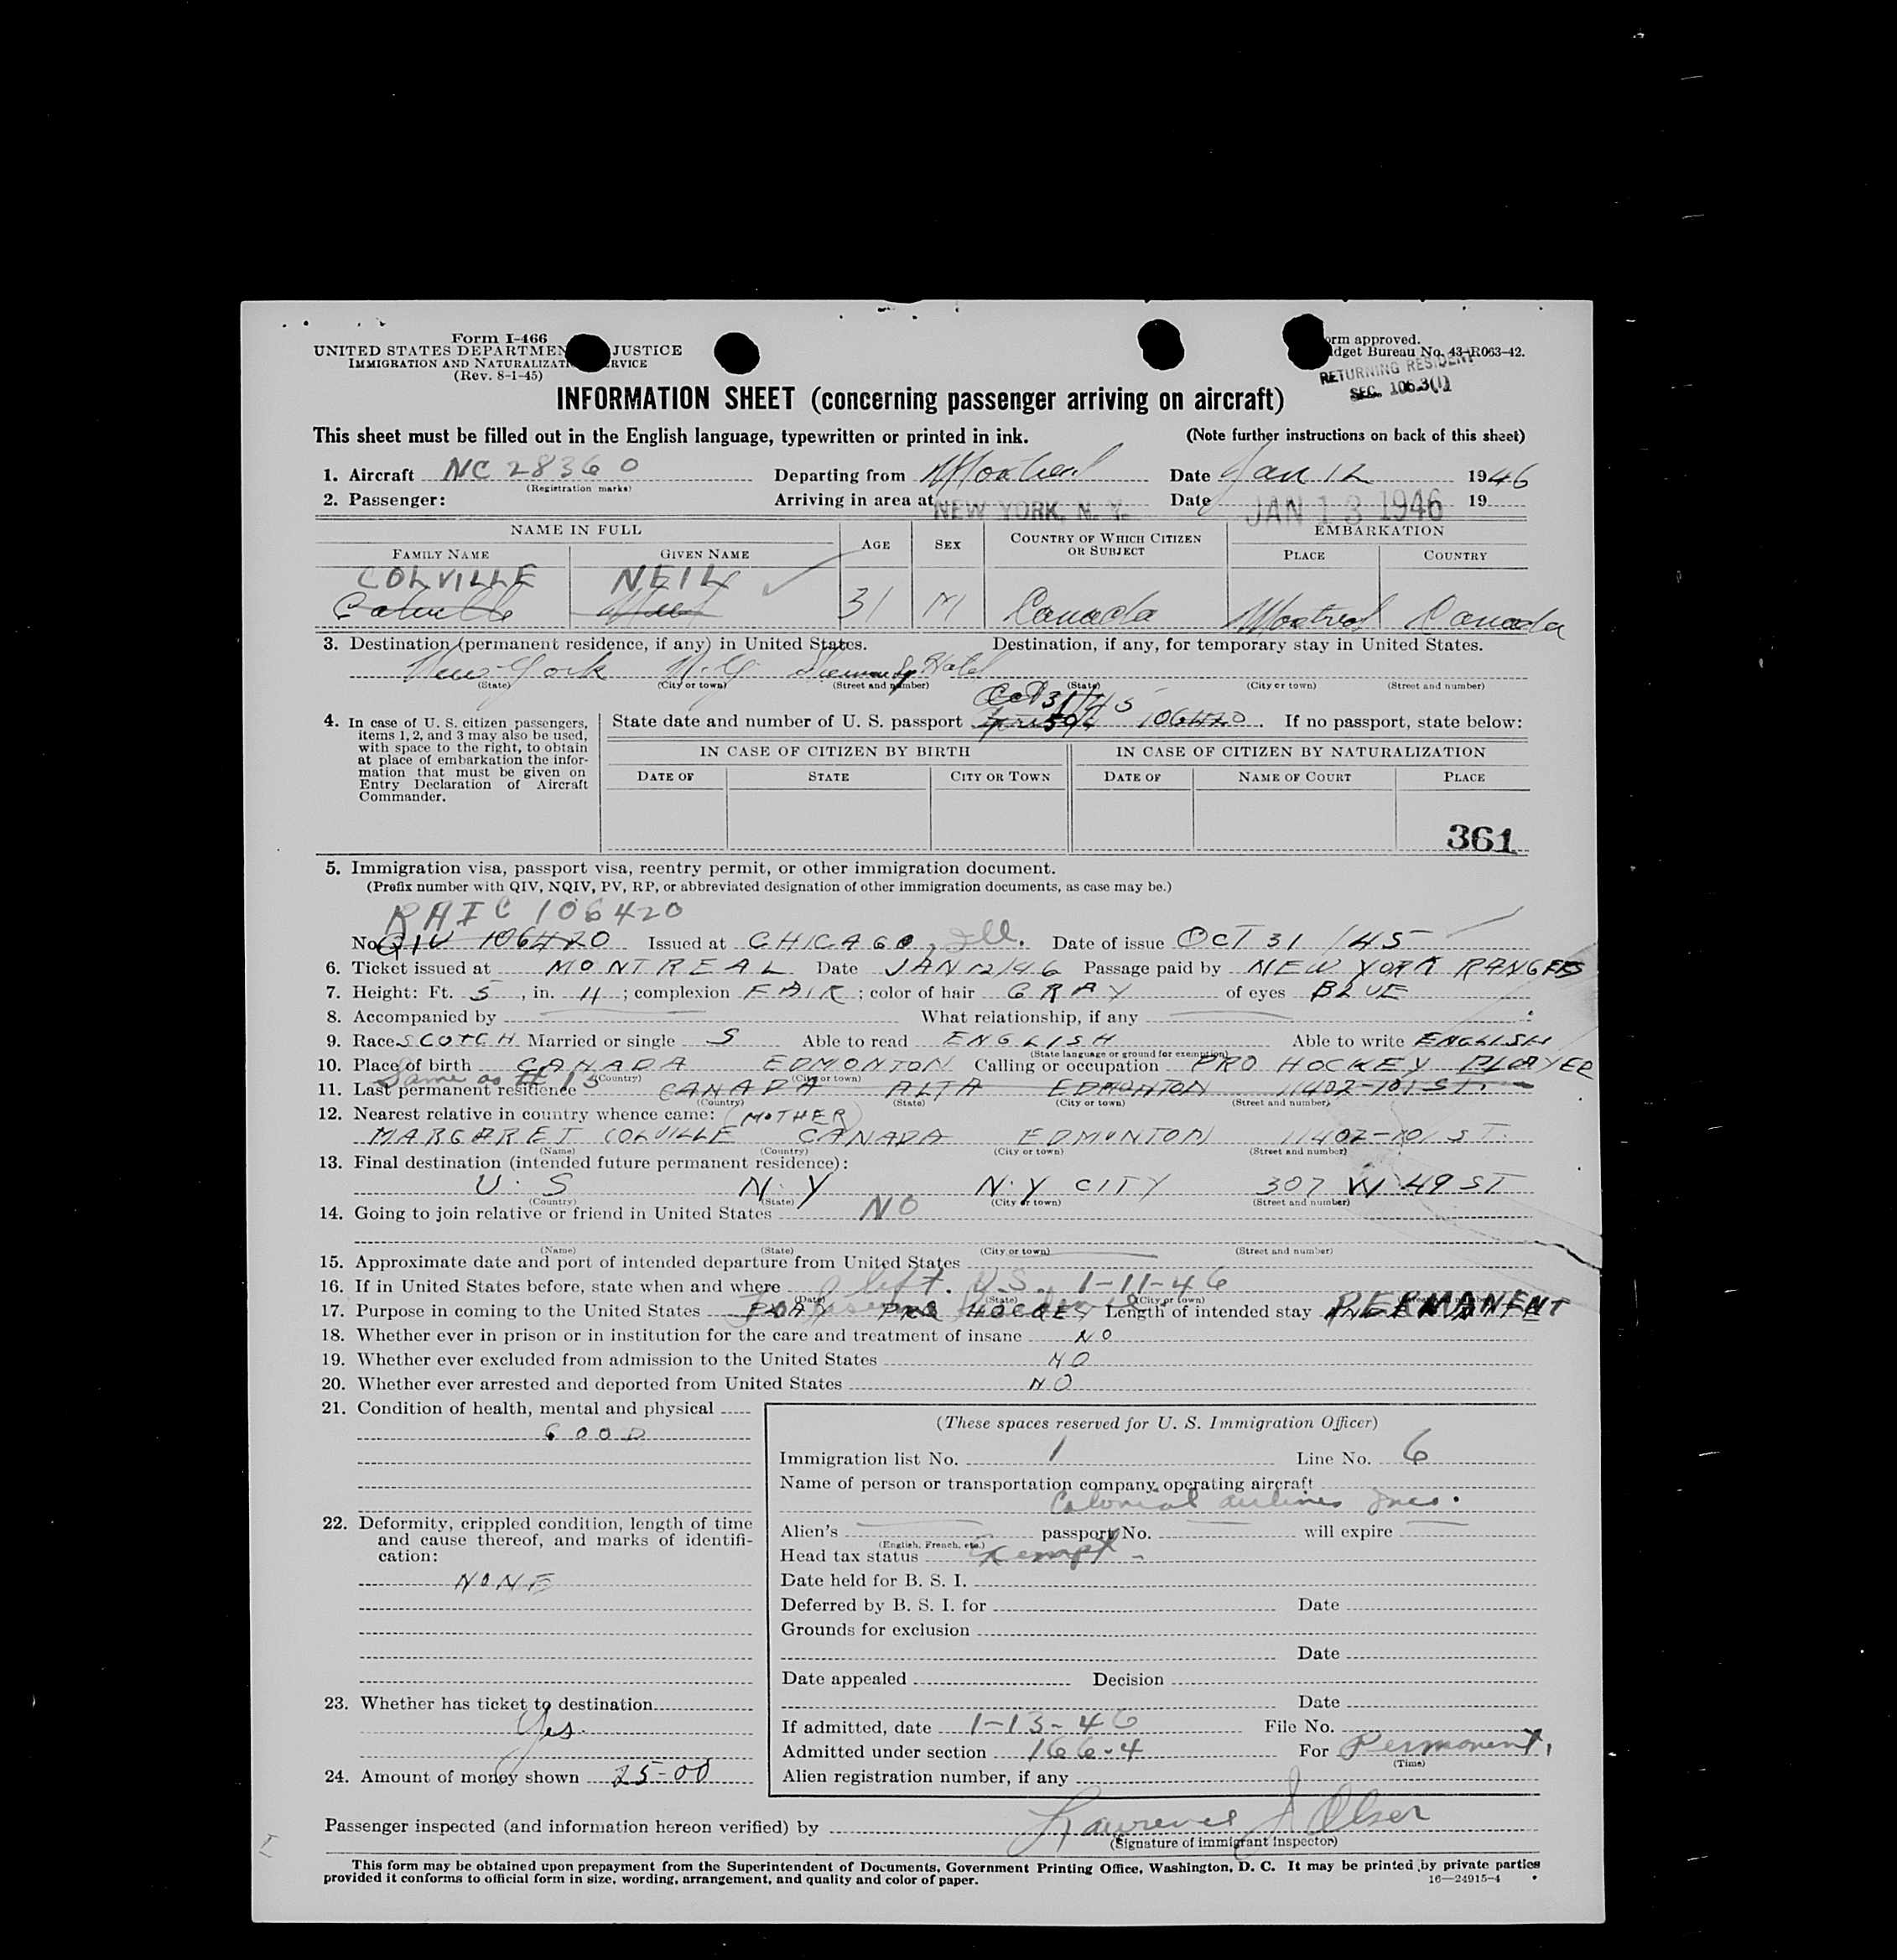 Form I-466
UNITED STATES DEPARTMEN JUSTICE
IMMIGRATION AND NATURALIZATI RVICE
(Rev. 8-1-45)
orm approved.
dget Bureau No. 43-R063-42.
RETURNING RESIDENT
SEC. 106.3(1)
INFORMATION SHEET (concerning passenger arriving on aircraft)
This sheet must be filled out in the English language, typewritten or printed in ink. (Note further instructions on back of this sheet)
1. Aircraft NC 28360 Departing from Montreal Date Jan 12 1946
(Registration marks)
2. Passenger: Arriving in area at NEW YORK, N. Y. Date JAN 13 1946 19
NAME IN FULL AGE SEX COUNTRY OF WHICH CITIZEN OR SUBJECT EMBARKATION
FAMILY NAME GIVEN NAME PLACE COUNTRY
COLVILLE NEIL
Colville Neil 31 M Canada Montreal Canada
3. Destination (permanent residence, if any) in United States. Destination, if any, for temporary stay in United States.
New York N.Y. Hotel
(State) (City or town) (Street and number) (State) (City or town) (Street and number)
Oct 31/45
4. In case of U. S. citizen passengers, items 1, 2, and 3 may also be used, with space to the right, to obtain at place of embarkation the information that must be given on Entry Declaration of Aircraft Commander.
State date and number of U. S. passport 106420. If no passport, state below:
IN CASE OF CITIZEN BY BIRTH IN CASE OF CITIZEN BY NATURALIZATION
DATE OF STATE CITY OR TOWN DATE OF NAME OF COURT PLACE
361
5. Immigration visa, passport visa, reentry permit, or other immigration document.
(Prefix number with QIV, NQIV, PV, RP, or abbreviated designation of other immigration documents, as case may be.)
RAIC 106420
No. QIV 106420 Issued at CHICAGO, Ill. Date of issue OCT 31 /45
6. Ticket issued at MONTREAL Date JAN 12/46 Passage paid by NEW YORK RANGERS
7. Height: Ft. 5, in. 11; complexion FAIR; color of hair GRAY of eyes BLUE
8. Accompanied by What relationship, if any
9. Race SCOTCH Married or single S Able to read ENGLISH Able to write ENGLISH
(State language or ground for exemption)
10. Place of birth CANADA EDMONTON Calling or occupation PRO HOCKEY PLAYER
(Country) (City or town)
Same as # 13
11. Last permanent residence CANADA ALTA EDMONTON 11402-101 ST.
(Country) (State) (City or town) (Street and number)
12. Nearest relative in country whence came: (MOTHER)
MARGARET COLVILLE CANADA EDMONTON 11402-101 ST.
(Name) (Country) (City or town) (Street and number)
13. Final destination (intended future permanent residence):
U. S N. Y N. Y CITY 307 W 49 ST
(Country) (State) (City or town) (Street and number)
14. Going to join relative or friend in United States NO
(Name) (State) (City or town) (Street and number)
15. Approximate date and port of intended departure from United States
16. If in United States before, state when and where left. U.S. 1-11-46
(Date) (State) (City or town)
17. Purpose in coming to the United States PLAY PRO HOCKEY Length of intended stay PERMANENT
18. Whether ever in prison or in institution for the care and treatment of insane NO
19. Whether ever excluded from admission to the United States NO
20. Whether ever arrested and deported from United States NO
21. Condition of health, mental and physical
GOOD
22. Deformity, crippled condition, length of time and cause thereof, and marks of identification:
NONE
23. Whether has ticket to destination
Yes.
24. Amount of money shown 25-00
(These spaces reserved for U. S. Immigration Officer)
Immigration list No. 1 Line No. 6
Name of person or transportation company operating aircraft
Colonial Airlines Inc.
Alien's passport No. will expire
(English, French, etc.)
Head tax status Exempt -
Date held for B. S. I.
Deferred by B. S. I. for Date
Grounds for exclusion
Date
Date appealed Decision
Date
If admitted, date 1-13-46 File No.
Admitted under section 166-4 For Permanent,
(Time)
Alien registration number, if any
Passenger inspected (and information hereon verified) by Lawrence J Olser
(Signature of immigrant inspector)
This form may be obtained upon prepayment from the Superintendent of Documents, Government Printing Office, Washington, D. C. It may be printed by private parties
provided it conforms to official form in size, wording, arrangement, and quality and color of paper. 16—24915-4